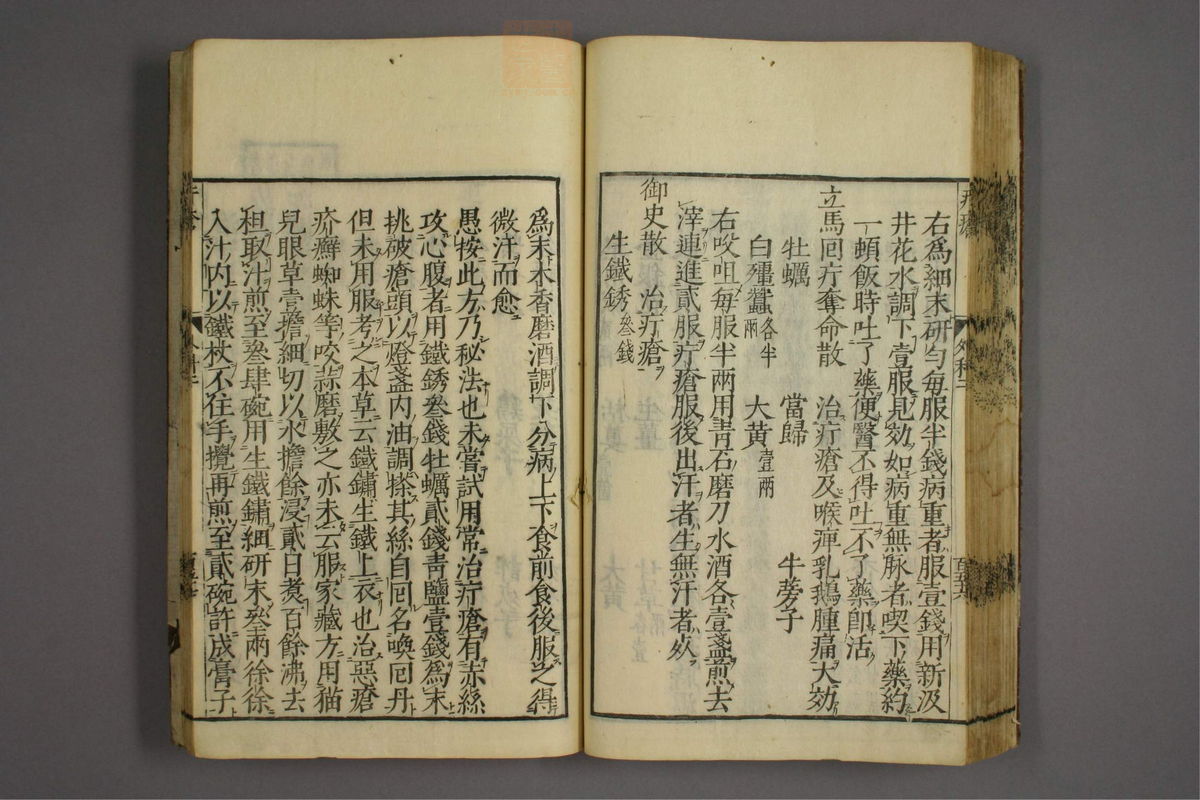 右爲細末研勻每服半錢病重者服壹錢用新汲
井花水調下壹服見効如病重無脉者喫下藥約
一頓飯時吐了藥便醫不得吐不了藥卽活
立馬回疔奪命散 治疔瘡及喉痺乳鵝腫痛大効
牡蠣 當歸 牛蒡子
白殭蠶各半兩 大黃壹兩
右㕮咀每服半兩用青石磨刀水酒各壹盞煎去
滓連進貳服疔瘡服後出汗者生無汗者死
御史散 治疔瘡
生鐵銹叄錢
爲末木香磨酒調下分病上下食前食後服之得
微汗而愈
愚按此方乃秘法也未嘗試用常治疔瘡有赤絲
攻心腹者用鐵銹叄錢牡蠣貳錢青鹽壹錢爲末
挑破瘡頭以燈盞内油調搽其絲自回名喚回丹
但未用服考之本草云鐵鏽生鐵上衣也治惡瘡
疥癬蜘蛛等咬蒜磨敷之亦未云服家藏方用猫
兒眼草壹擔細切以水擔餘浸貳日煑百餘沸去
柤取汁煎至叄肆碗用生鐵鏽細研末叄兩徐徐
入汁内以鐵杖不住手攪再煎至貳碗許成膏子